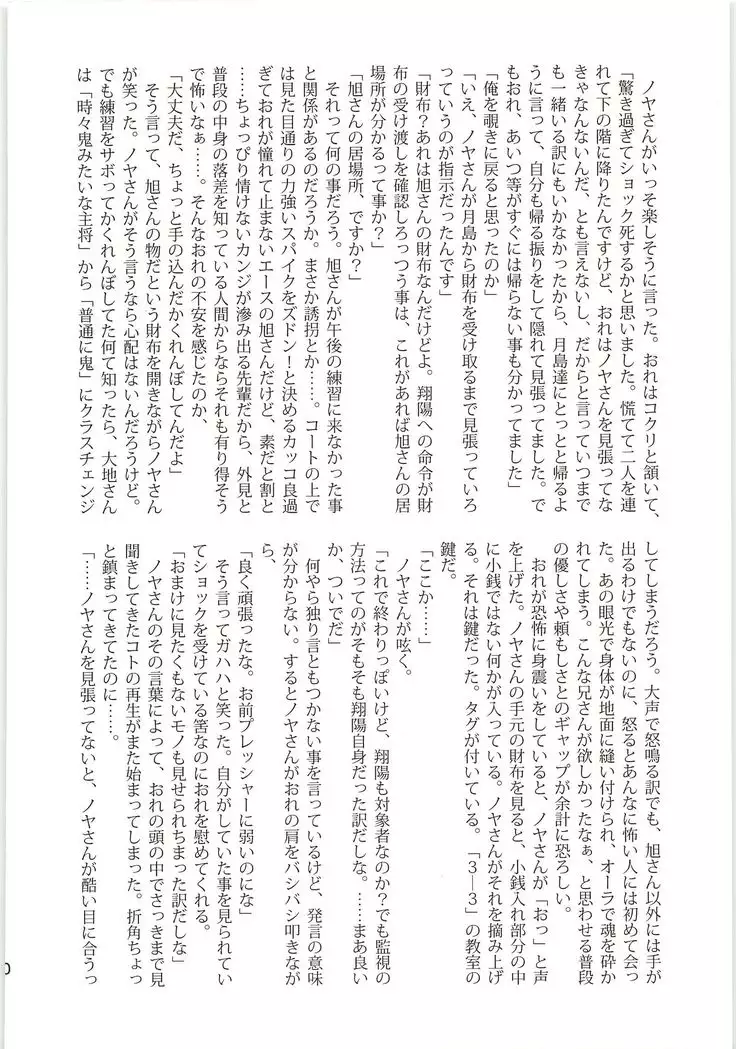 ノヤさんがいっそ楽しそうに言った。おれはコクリと頷いて、
「驚き過ぎてショック死するかと思いました。慌てて二人を連
れて下の階に降りたんですけど、おれはノヤさんを見張ってな
きゃなんないんだ、とも言えないし、だからと言っていつまで
も一緒いる訳にもいかなかったから、月島達にとっとと帰るよ
うに言って、自分も帰る振りをして隠れて見張ってました。で
もおれ、あいつ等がすぐには帰らない事も分かってました」
「俺を覗きに戻ると思ったのか」
「いえ、ノヤさんが月島から財布を受け取るまで見張っていろ
っていうのが指示だったんです」
「財布？あれは旭さんの財布なんだけどよ。翔陽への命令が財
布の受け渡しを確認しろっつう事は、これがあれば旭さんの居
場所が分かるって事か？」
「旭さんの居場所、ですか？」
　それって何の事だろう。旭さんが午後の練習に来なかった事
と関係があるのだろうか。まさか誘拐とか……。コートの上で
は見た目通りの力強いスパイクをズドン！と決めるカッコ良過
ぎておれが憧れて止まないエースの旭さんだけど、素だと割と
……ちょっぴり情けないカンジが滲み出る先輩だから、外見と
普段の中身の落差を知っている人間からならそれも有り得そう
で怖いなぁ……。そんなおれの不安を感じたのか、
「大丈夫だ、ちょっと手の込んだかくれんぼしてんだよ」
　そう言って、旭さんの物だという財布を開きながらノヤさん
が笑った。ノヤさんがそう言うなら心配はないんだろうけど。
でも練習をサボってかくれんぼしてた何て知ったら、大地さん
は「時々鬼みたいな主将」から「普通に鬼」にクラスチェンジ
してしまうだろう。大声で怒鳴る訳でも、旭さん以外には手が
出るわけでもないのに、怒るとあんなに怖い人には初めて会っ
た。あの眼光で身体が地面に縫い付けられ、オーラで魂を砕か
れてしまう。こんな兄さんが欲しかったなぁ、と思わせる普段
の優しさや頼もしさとのギャップが余計に恐ろしい。
　おれが恐怖に身震いをしていると、ノヤさんが「おっ」と声
を上げた。ノヤさんの手元の財布を見ると、小銭入れ部分の中
に小銭ではない何かが入っている。ノヤさんがそれを摘み上げ
る。それは鍵だった。タグが付いている。「３―３」の教室の
鍵だ。
「ここか……」
　ノヤさんが呟く。
「これで終わりっぽいけど、翔陽も対象者なのか？でも監視の
方法ってのがそもそも翔陽自身だった訳だしな。……まあ良い
か、ついでだ」
　何やら独り言ともつかない事を言っているけど、発言の意味
が分からない。するとノヤさんがおれの肩をバシバシ叩きなが
ら、
「良く頑張ったな。お前プレッシャーに弱いのにな」
　そう言ってガハハと笑った。自分がしていた事を見られてい
てショックを受けている筈なのにおれを慰めてくれる。
「おまけに見たくもないモノも見せられちまった訳だしな」
　ノヤさんのその言葉によって、おれの頭の中でさっきまで見
聞きしてきたコトの再生がまた始まってしまった。折角ちょっ
と鎮まってきてたのに……。
「……ノヤさんを見張ってないと、ノヤさんが酷い目に合うっ